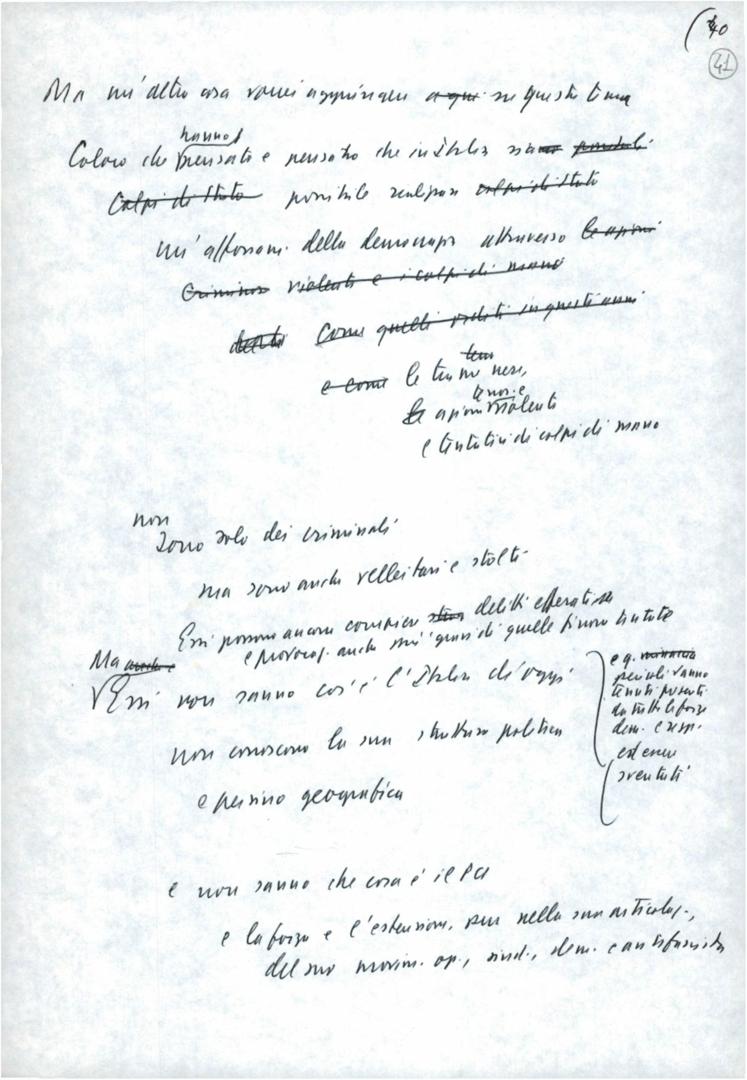 40
41
Ma un'altra cosa vorrei aggiungere a qu su questo tema
hanno
Coloro che pensato e pensano che in Italia siano possibili
Colpi di Stato possibile realizzare colpi di Stato
un'affossam. della democrazia attraverso le azioni
Criminose violenti e i colpi di mano
Come quelli veduti in questi anni
e come le trame nere,
terror. e
le azioni violenti
e tentativi di colpi di mano
non
Sono solo dei criminali
ma sono anche velleitari e stolti
Essi possono ancora compiere delitti efferatiss
e provocaz. anche più gravi di quelle finora tentate
Ma anche
Essi non sanno cos'è l'Italia di oggi
e q. minaccia
pericoli vanno
tenuti presenti
da tutte le forze
dem. e resp.
ed essere
sventati
non conoscono la sua struttura politica
e persino geografica
e non sanno che cosa è il PCI
e la forza e l'estensione, pur nella sua articolaz.,
del suo movim. op., sind., dem. e antifascista